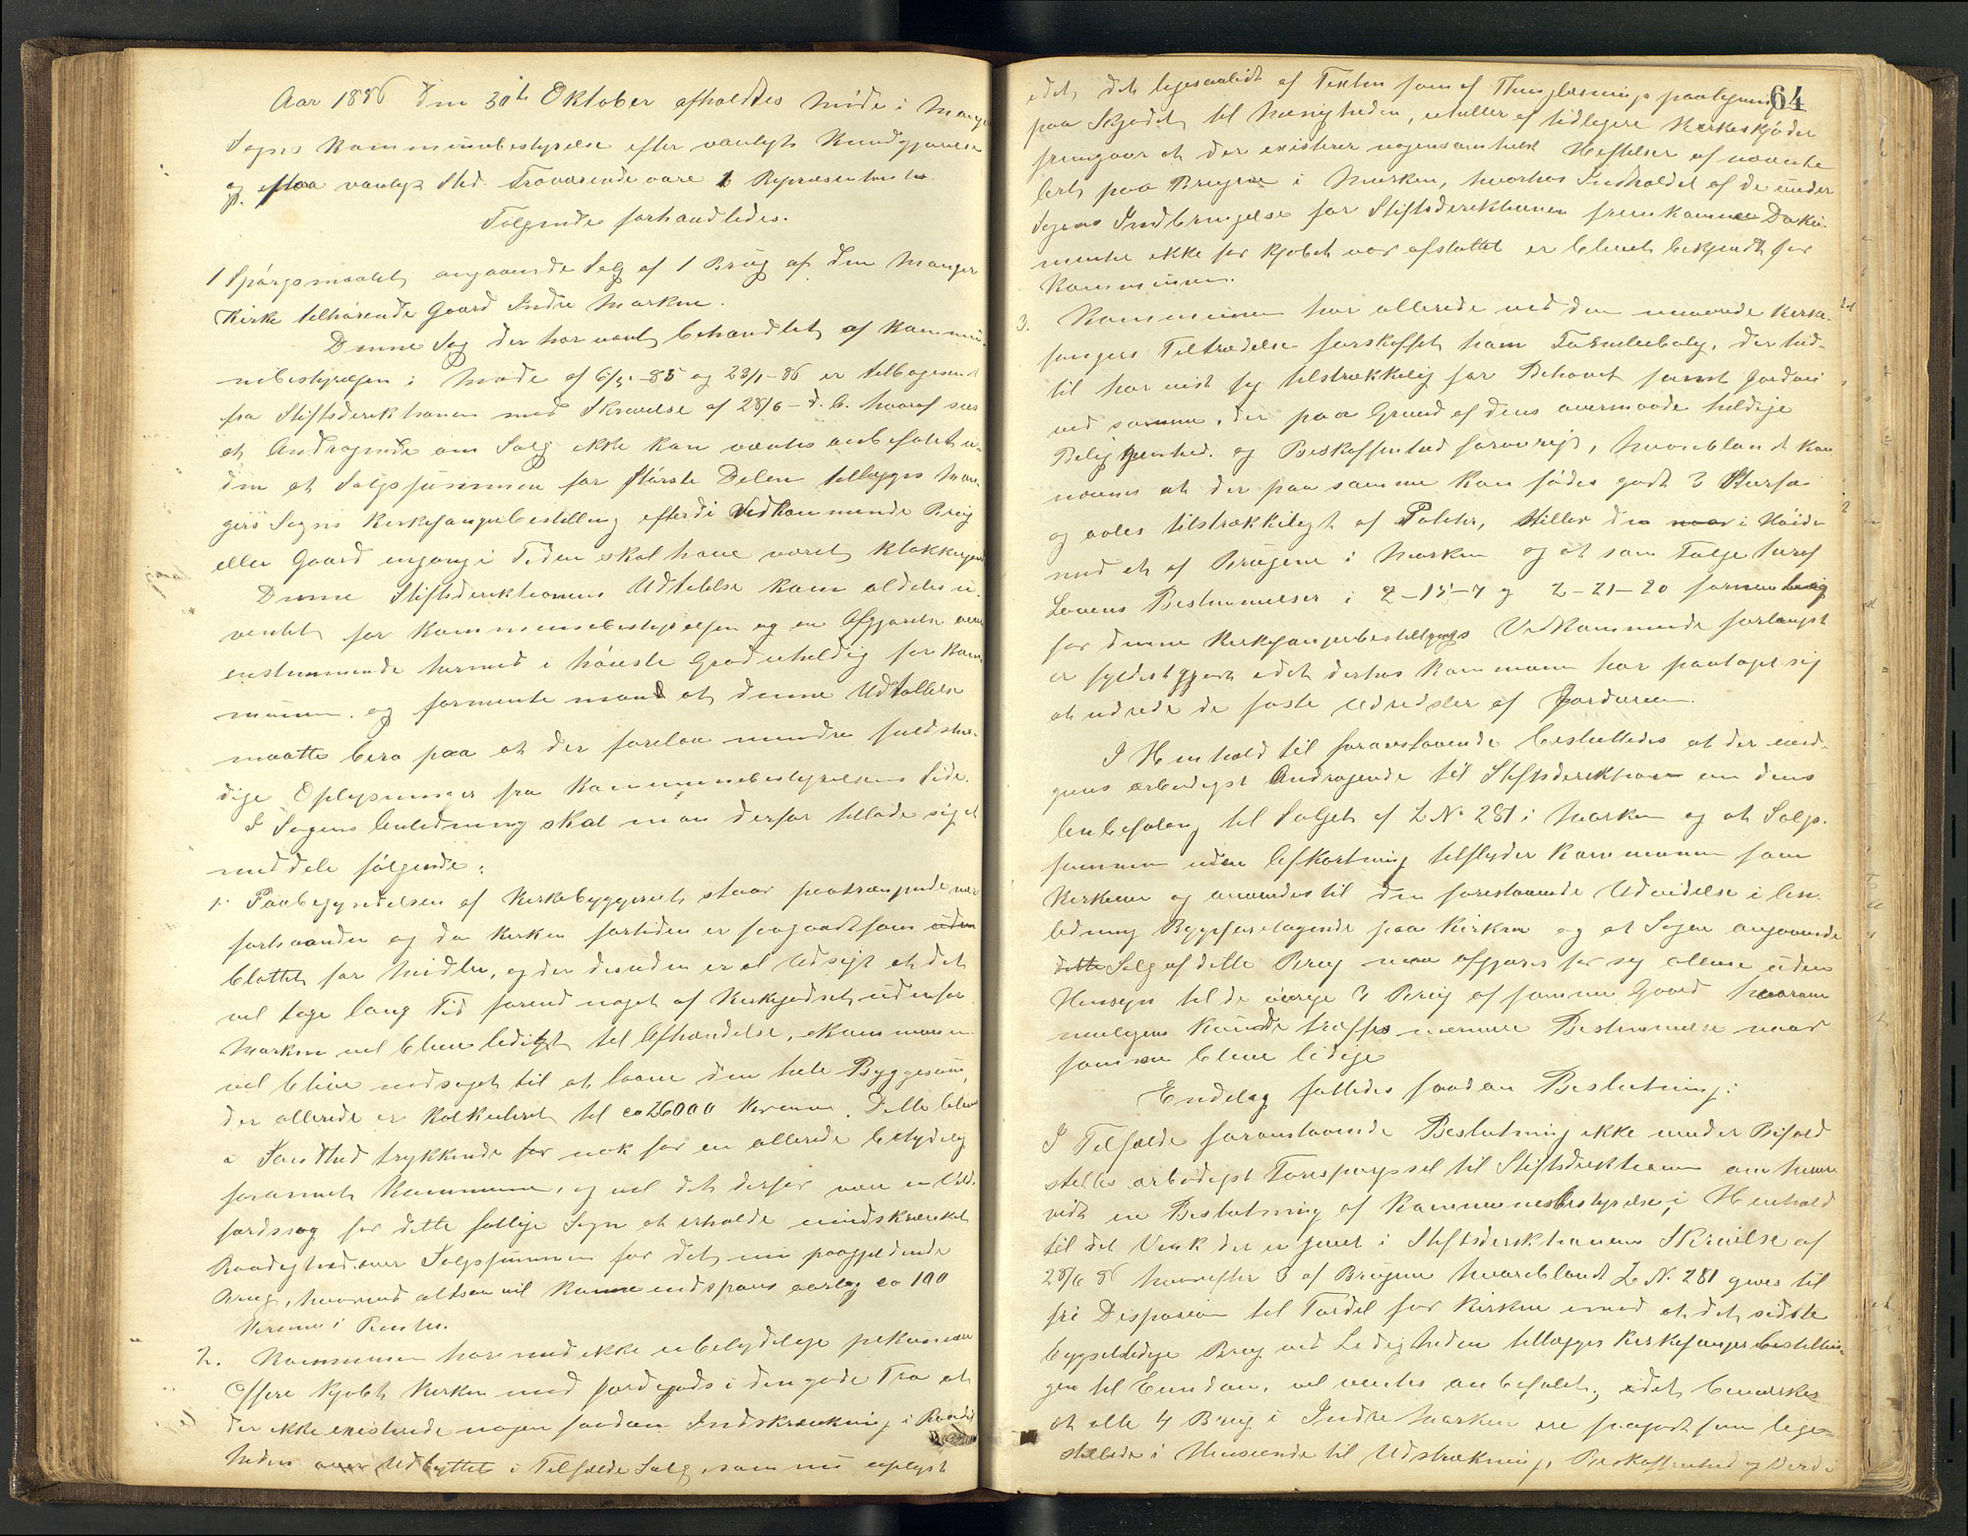 Aar 1886 den 30te Oktober afholdtes Møde i Manger
Sogns Kommunebestyrelse efter vanligt Kundgjørelse
og paa vanligt Sted. Fraværende vare Repræsentanter.
Følgende forhandledes.
1 Spørgsmaalet angaaende Salg af 1 Brug af den Manger
Kirke tilhørende Gaard Indre Marken.
Denne Sag der har været behandlet af Kommu-
nebestyrelsen i Møde af 6/5-85 og 23/1-86 er tilbagesendt
fra Stiftsdirektionen med Skrivelse af 28/6 d. A. hvoraf sees
at Andragende om Salg ikke kan ventes anbefalet u-
den at Salgssummen for største Delen tillægges Man-
gers Sogns Kirkesangerbestilling efterdi Vedkommende Brug
eller Gaard engang i Tiden skal have været Klokkergaard
Denne Stiftsdirektionens Udtalelse kom aldeles u-
ventet for Kommunebestyrelsen og en Afgjørelse over-
enstemmende hermed i høieste Grad uheldig for Kom-
munen. og formente man at denne Udtallelse
maatte bero paa at der forelaa mindre fuldstæn-
dige Oplysninger fra Kommunebestyrelsens Side.
I Sagens Anledning skal man derfor tillade sig at
meddele følgende:
1. Paabegyndelsen af Kirkebyggeriet staar paatrængende nær
forhaanden og da Kirken fortiden er saagodtsom uden
blottet for Midler, og der desuden er al Udsigt at det
vil tage lang Tid førend noget af Kirkegodset udenfor
Marken vil blive ledigt til Afhændelse, Kommunen
vil blive nødsaget til at laane den hele Byggesum,
der allerede er kalkuleret til ca 26000 Kroner. Dette bliver
i Sandhed trykkende for nok for en allerede betydelig
forarmet Kommune, og vil det derfor være en Vel-
færdssag for dette fattige Sogn at erholde uindskrænket
Raadighed over Salgssummen for det nu paagjældende
Brug, hvorved altsaa vil kunne indspares aarlig ca 100
Kroner i Renter.
2. Kommunen har med ikke ubetydelige pekuniære
Offere kjøbt Kirken med Jordegods i den gode Tro at
der ikke existerede nogen saadan Indskrænkning i Raadig
heden over Udbyttet i Tilfælde Salg, som nu oplyst
64
idet, det ligesaalidt af Texten som af Thinglæsnings paategning
paa Skjødet til Menigheden, eller af tidligere Kirkeskjøder
fremgaar at der existerer nogensomhelst Heftelser af nævnte
Art paa Brugene i Marken, hvorhos Indholdet af de under
Sagens Indbringelse for Stiftsdirektionen fremkomne Doku-
menter ikke før Kjøbet var afsluttet er blevet bekjendt for
Kommunen.
3. Kommunen har allerede ved den nuværende Kirke-
sangers Tiltrædelse forskaffet ham Familiebolig, der hid-
til har vist sig tilstrækkelig for Behovet samt Jordvei
ved samme, der paa Grund af dens overmaade heldige
Beliggenhed. og Beskaffenhed forøvrigt, hvoriblandt kan
nævnes at der paa samme kan fødes godt 3 Storfæ
og avles tilstrækkeligt af Poteter, stiller den i Høide
med et af Brugene i Marken og at som Følge heraf
Lovens Bestemmelser i 2-15-7 og 2-21-20
for denne Kirkesangerbestillings Vedkommende forlængst
er fyldestgjort idet derhos Kommunen har paataget sig
at udrede de faste Udredsler af Jordveien.
I Henhold til foranstaaende besluttedes at der ind-
gives ærbødigst Andragende til Stiftsdirektionen om dens
Anbefaling til Salget af L No 281 i Marken og at Salgs-
summen uden Afkortning tilflyder Kommunen som
Kirkeeier og anvendes til den forestaaende Udvidelse i An-
ledning Byggeforetagende paa Kirken og at Sagen angaaende
dette Salg af dette Brug maa afgjøres for sig allene uden
Hensyn til de øvrige 3 Brug af samme Gaard hvorom
muligens kunde træffes nærmere Bestemmelse naar
samme blive ledige
Endelig fattedes saadan Beslutning:
I Tilfælde foranstaaende Beslutning ikke vinder Bifald
stilles ærbødigst Forespørgsel til Stiftsdirektionen om hvor-
vidt en Beslutning af Kommunebestyrelsen, i Henhold
til det Vink der er givet i Stiftsdirektionens Skrivelse af
28/6 86 hvorefter 3 af Brugene hvoriblandt L No 281 gives til
fri Disposion til Fordel for Kirken imod at det sidste
bygselledige Brug ved Ledigheden tillægges Kirkesangerbestillin-
gen til Eiendom, vil ventes anbefalet; idet bemærkes
at alle 4 Brug i Indre Marken ere saagodtsom lige-
stillede i Henseende til Udstrækning, Beskaffenhed og Værdi